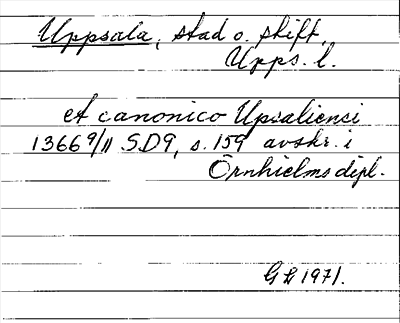 Uppsala, stad o. stift,
Upps. l.
et canonico Upsaliensi
1366 9/11 SD9, s. 159 avskr. i
Örnhielms dipl.
G L 1971.